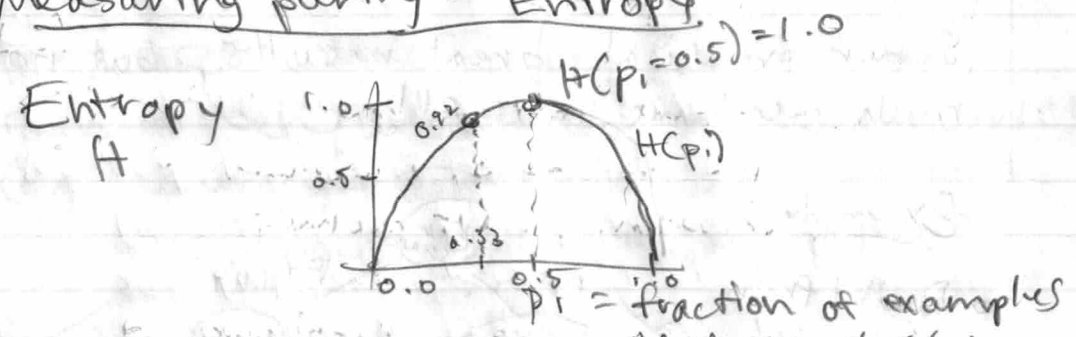 Measuring purity Entropy
H(pi=0.5)=1.0
Entropy
H
1.0
0.92
H(pi)
0.5
0.33
0.0 0.5 1.0
pi = fraction of examples